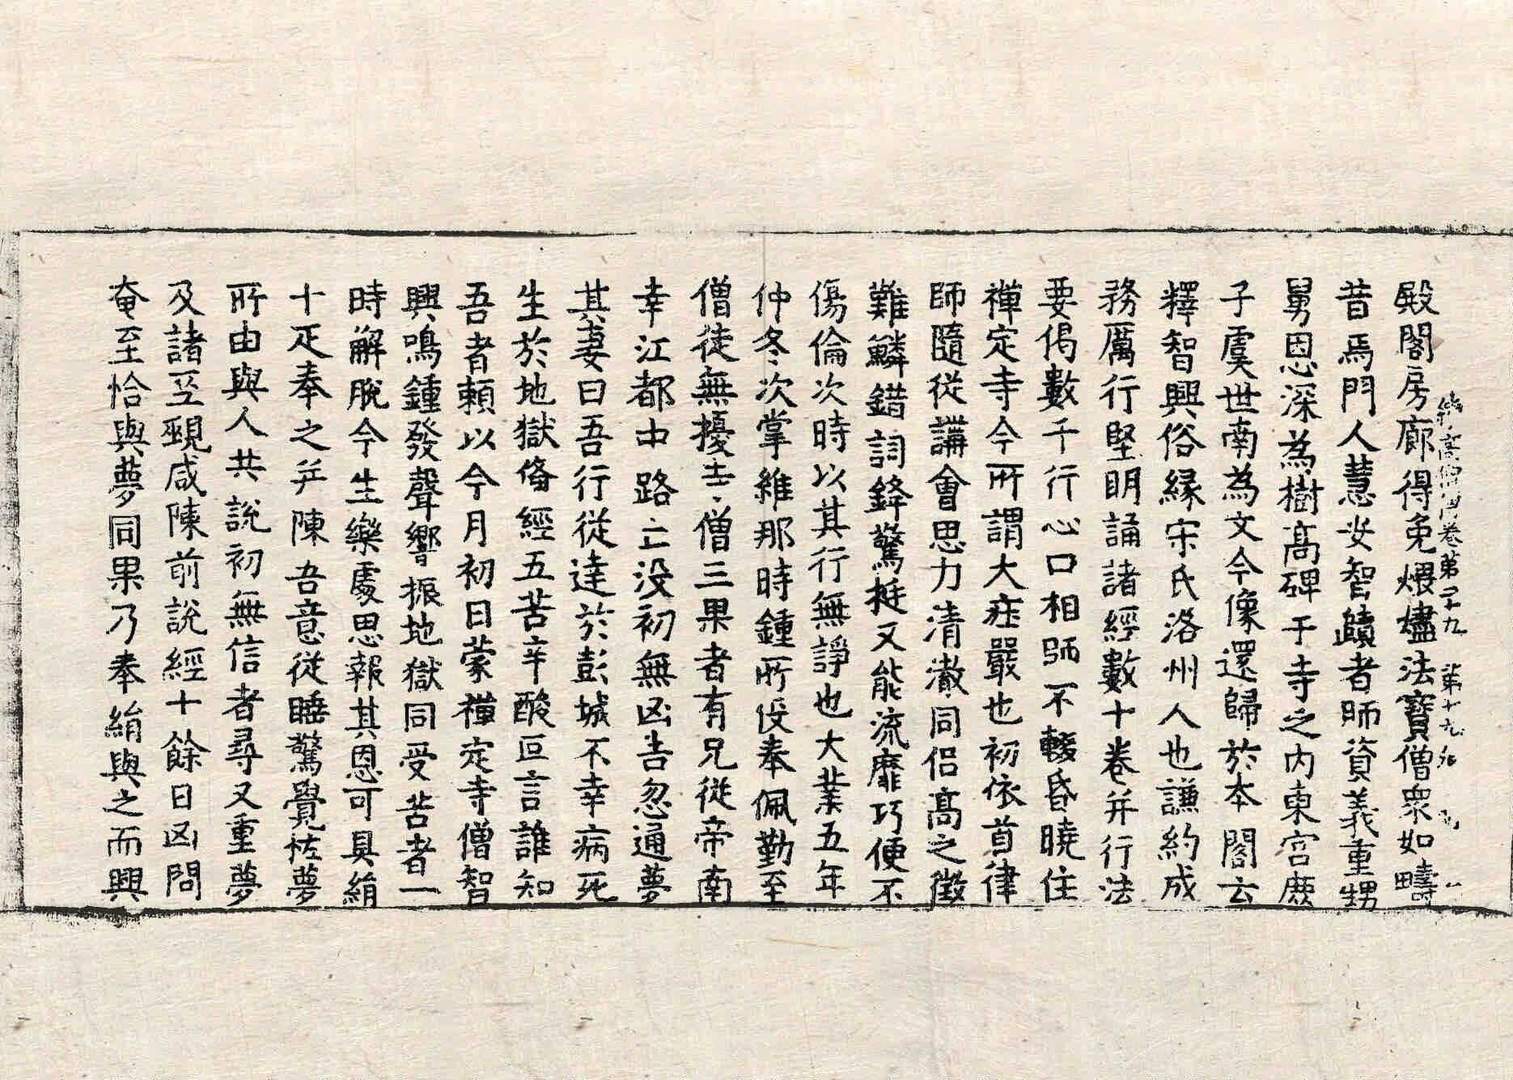 殿閣房廊得免煨燼法寶僧衆如疇
續高僧傳卷第二十九 第十九張
昔焉門人慧安智賾者師資義重甥
舅恩深為樹高碑于寺之內東宮庶
子虞世南為文今像還歸於本閣云
釋智興俗緣宋氏洛州人也謙約成
務厲行堅明誦諸經數十卷并行法
要偈數千行心口相師不輟昏曉住
禪定寺今所謂大莊嚴也初依首律
師隨從講會思力清澈同侶高之徵
難鱗錯詞鋒驚挺又能流靡巧便不
傷倫次時以其行無諍也大業五年
仲冬次掌維那時鍾所役奉佩勤至
僧徒無擾寺僧三果者有兄從帝南
幸江都中路亡没初無凶告忽通夢
其妻曰吾行從達於彭城不幸病死
生於地獄俻經五苦辛酸叵言誰知
吾者賴以今月初日蒙禪定寺僧智
興鳴鍾發聲響振地獄同受苦者一
時解脫今生樂處思報其恩可具絹
十疋奉之并陳吾意從睡驚覺恠夢
所由與人共說初無信者尋又重夢
及諸巫覡咸陳前說經十餘日凶問
奄至恰與夢同果乃奉絹與之而興